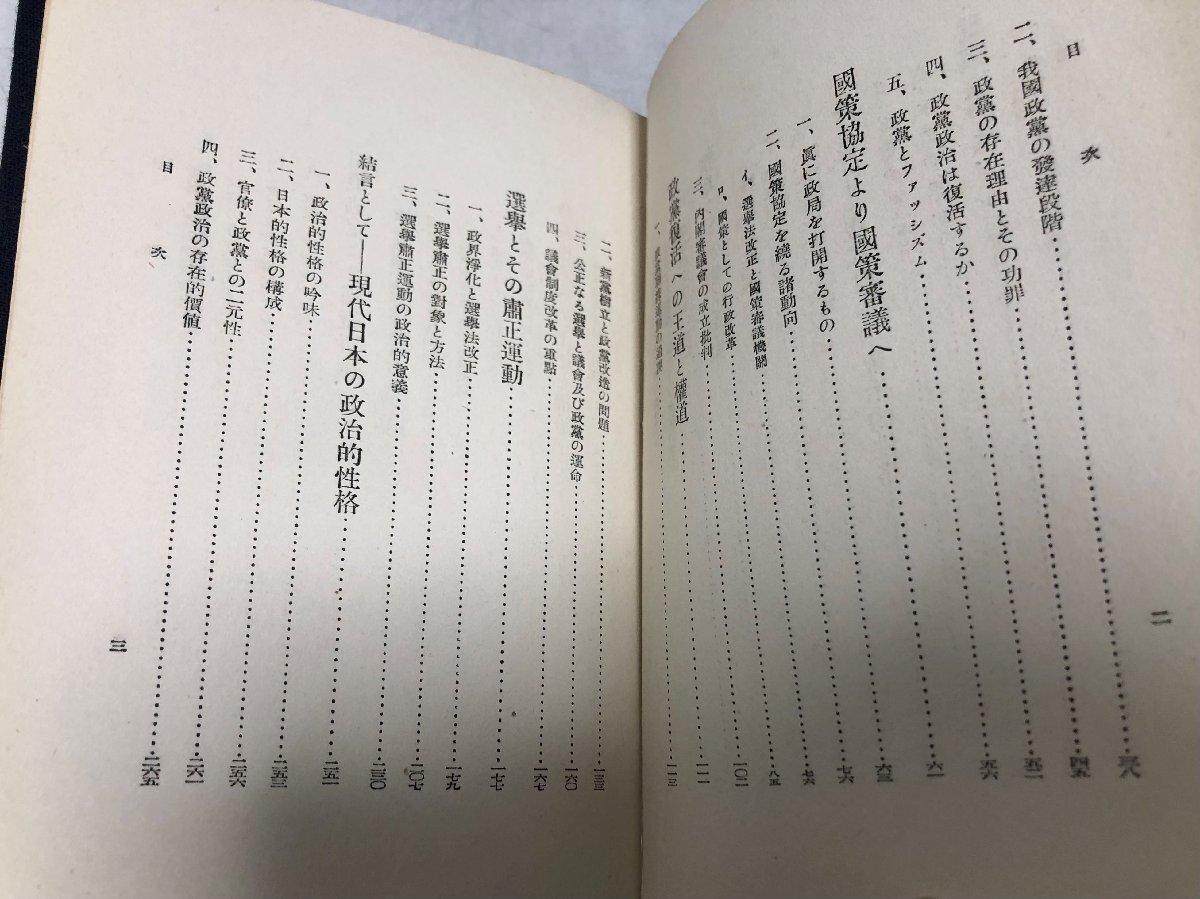 目次
二、我國政黨の發達段階……三八
三、政黨の存在理由とその功罪……四五
四、政黨政治は復活するか……五二
五、政黨とファッシズム……五六
國策協定より國策審議へ……六一
一、眞に政局を打開するもの……六三
二、國策協定を繞る諸動向……七六
イ、選擧法改正と國策審議機關……七六
ロ、國策としての行政改革……八五
三、內閣審議會の成立批判……一〇二
政黨復活への王道と權道……一一一
一、……一一三
二
二、新黨樹立と政黨改造の問題……一三三
三、公正なる選擧と議會及び政黨の運命……一六〇
四、議會制度改革の重點……一六七
選擧とその肅正運動……一七七
一、政界淨化と選擧法改正……一七九
二、選擧肅正の對象と方法……二〇七
三、選擧肅正運動の政治的意義……二三〇
結言として――現代日本の政治的性格……二五一
一、政治的性格の吟味……二五三
二、日本的性格の構成……二五六
三、官僚と政黨との二元性……二六一
四、政黨政治の存在的價値……二六五
目次
三